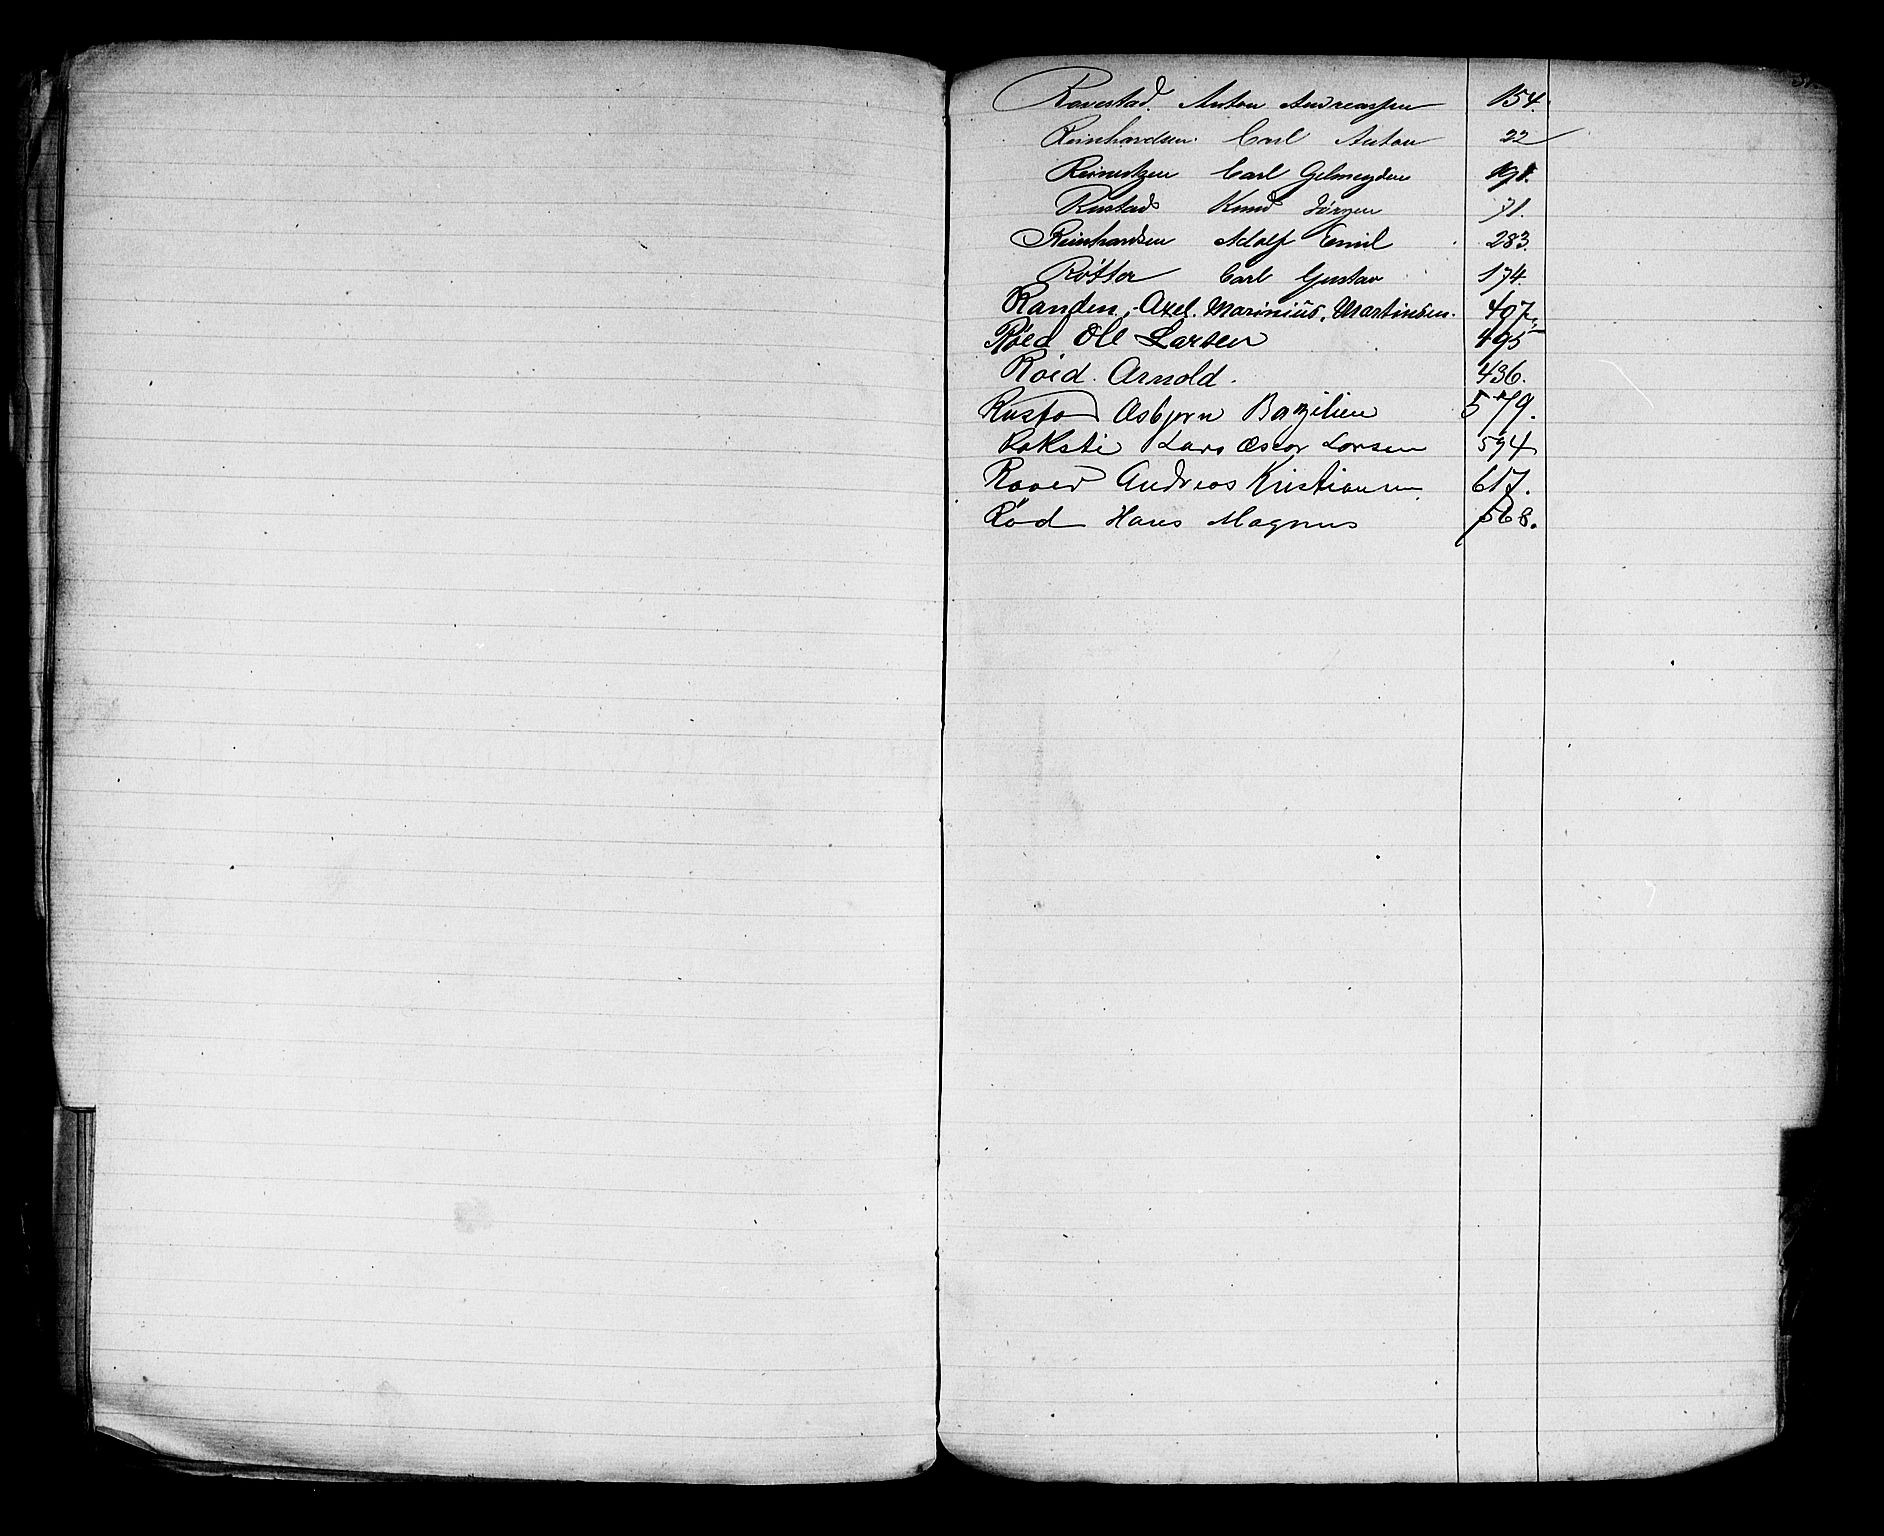 Ravestad. Anton Andreassen 154.
Reinhardsen. Carl Anton 22
Reinertzen Carl Gelmeyden 191.
Rustad Knud Jörgen 71.
Reinhardsen Adolf Emil 283
Carl Gustav 174.
Randen, Axel. Marinius. Martinsen. 407.
Röed Ole Larsen 495
Röid. Arnold. 436.
Asbjørn 579.
Raksti Lars Oscar Larsen 594
Andreas Kristiansen 617.
Röd Hans Magnus 568.